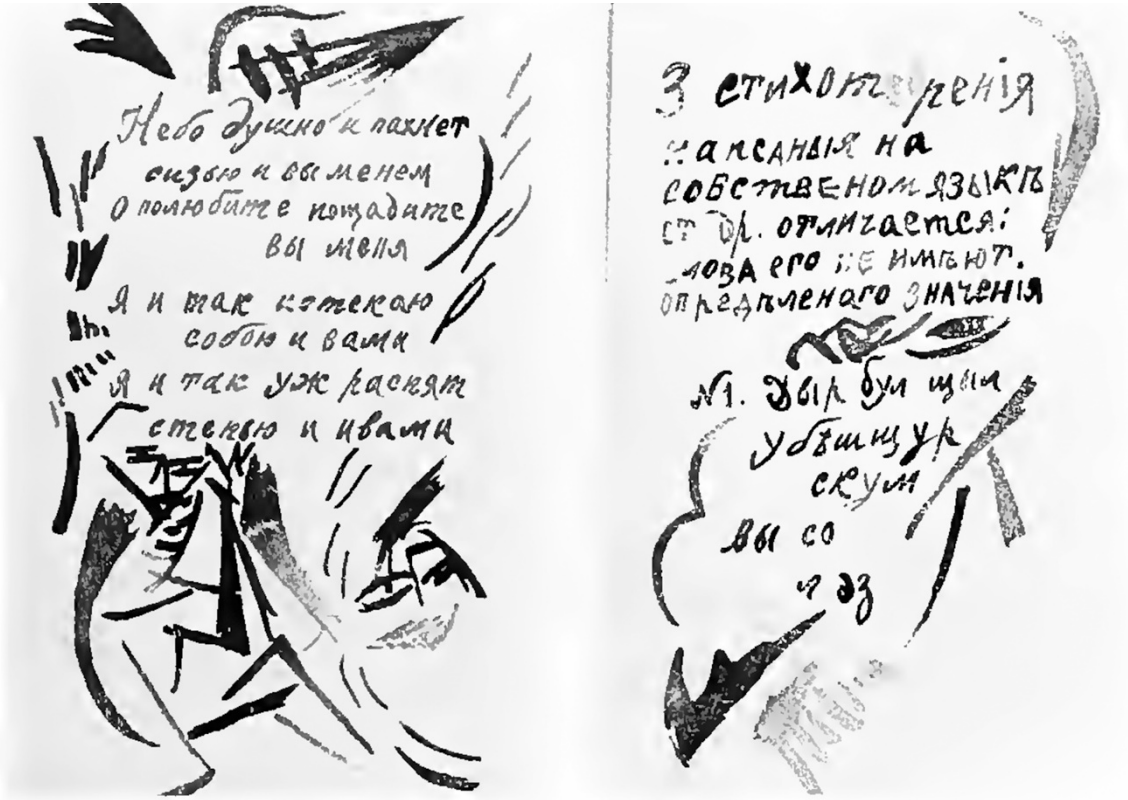 Небо душно и пахнет
сизью и выменем
О полюбите пощадите
вы меня
Я и так истекаю
собою и вами
Я и так уж распят
степью и ивами
3 стихотворенія
напсаныя на
собственом языкѣ
от др. отличается:
слова его не имѣют.
опредѣленаго значенія
№1. Дыр бул щыл
убѣшщур
скум
вы со
эз